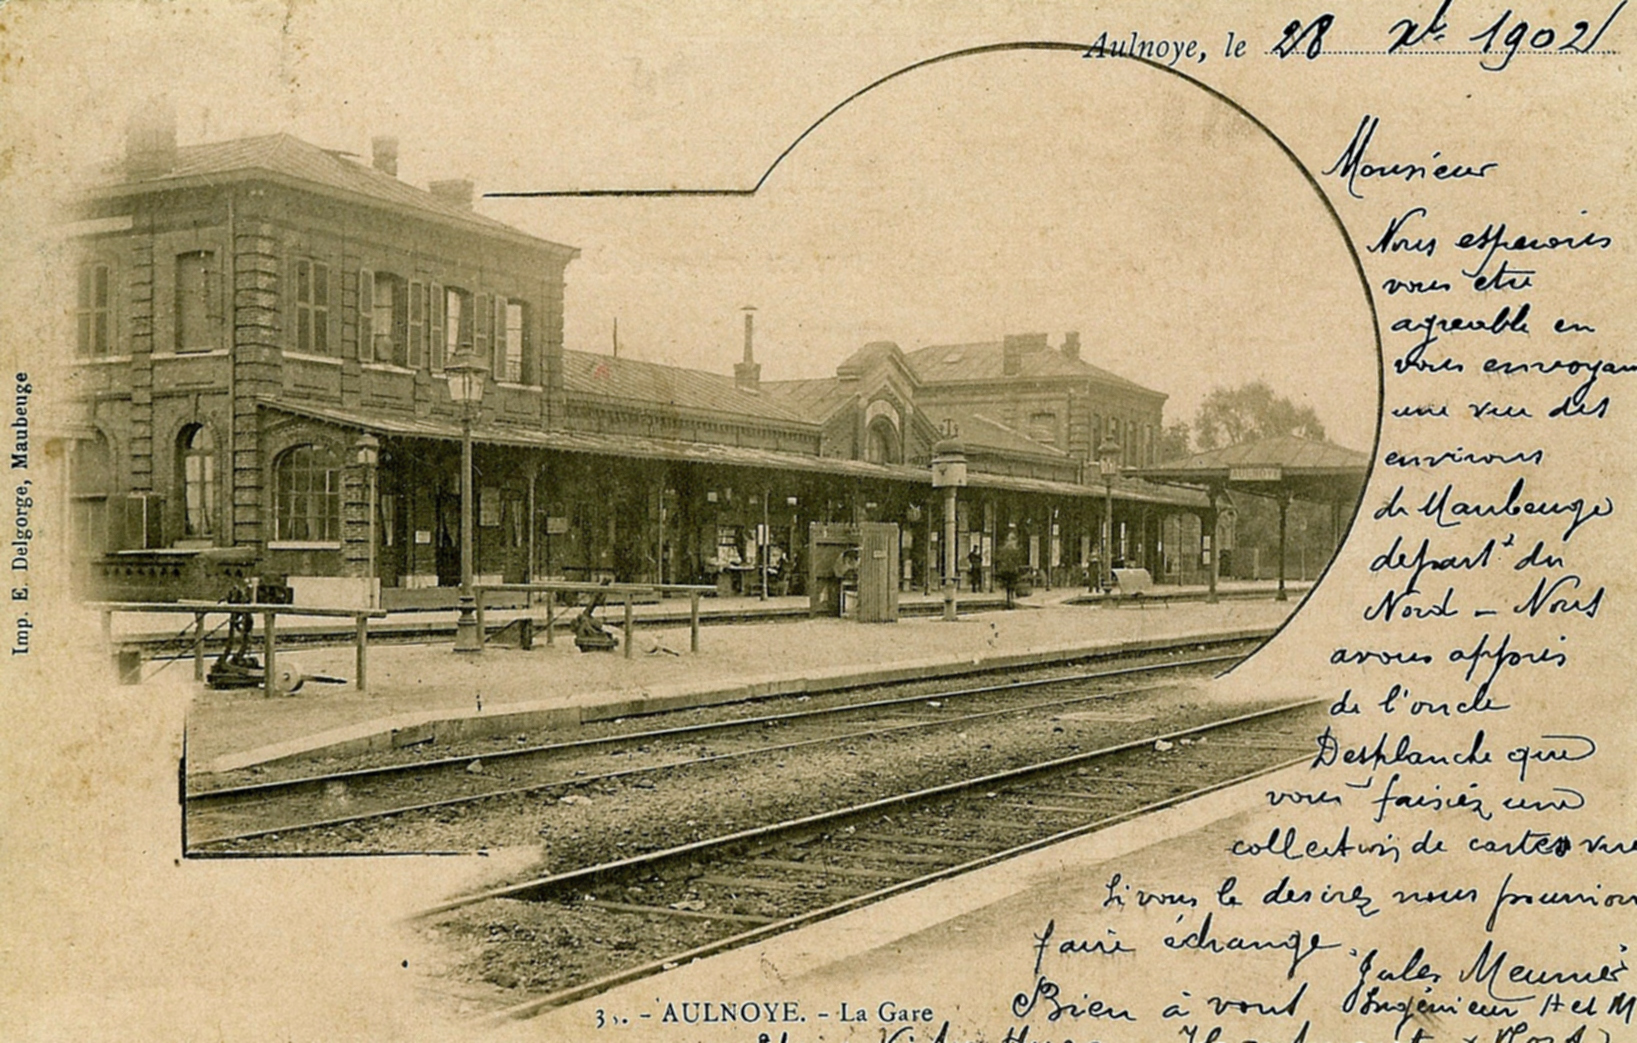 Aulnoye, le 28 Xbre 1902
Monsieur
Nous esperons
vous etre
agreable en
vous envoyan
une vue des
environs
de Maubeuge
depart.t du
Nord - Nous
avons appris
de l'oncle
Desplanche que
vous faisiez une
collection de cartes vue
Si vous le desirez nous pourrion
faire échange.
Jules Meunier
Bien à vous Ingénieur H et M
Victor Hugo
AULNOYE
3 . - AULNOYE. - La Gare
Imp. E. Delgorge, Maubeuge